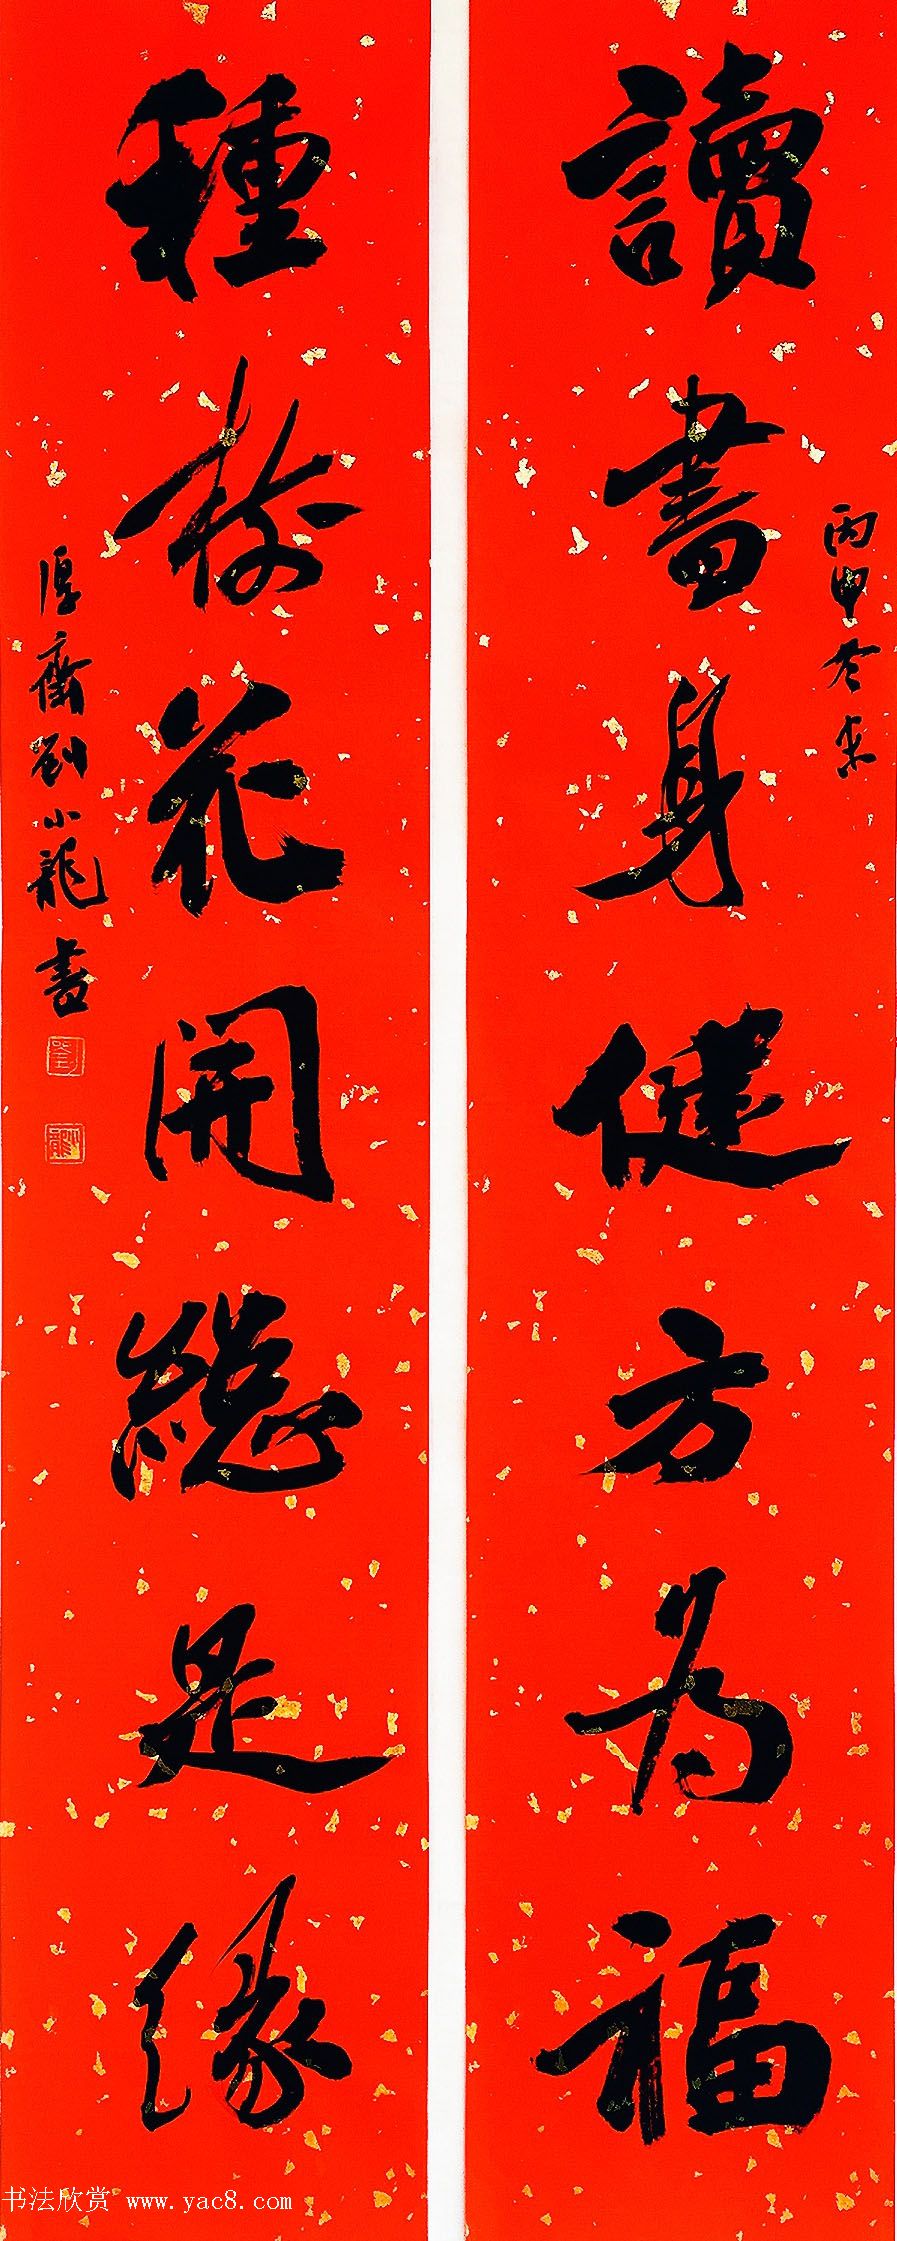 讀書身健方為福
丙申冬末
種樹花開總是緣
厚齋劉小龍書
劉
书法欣赏 www.yac8.com